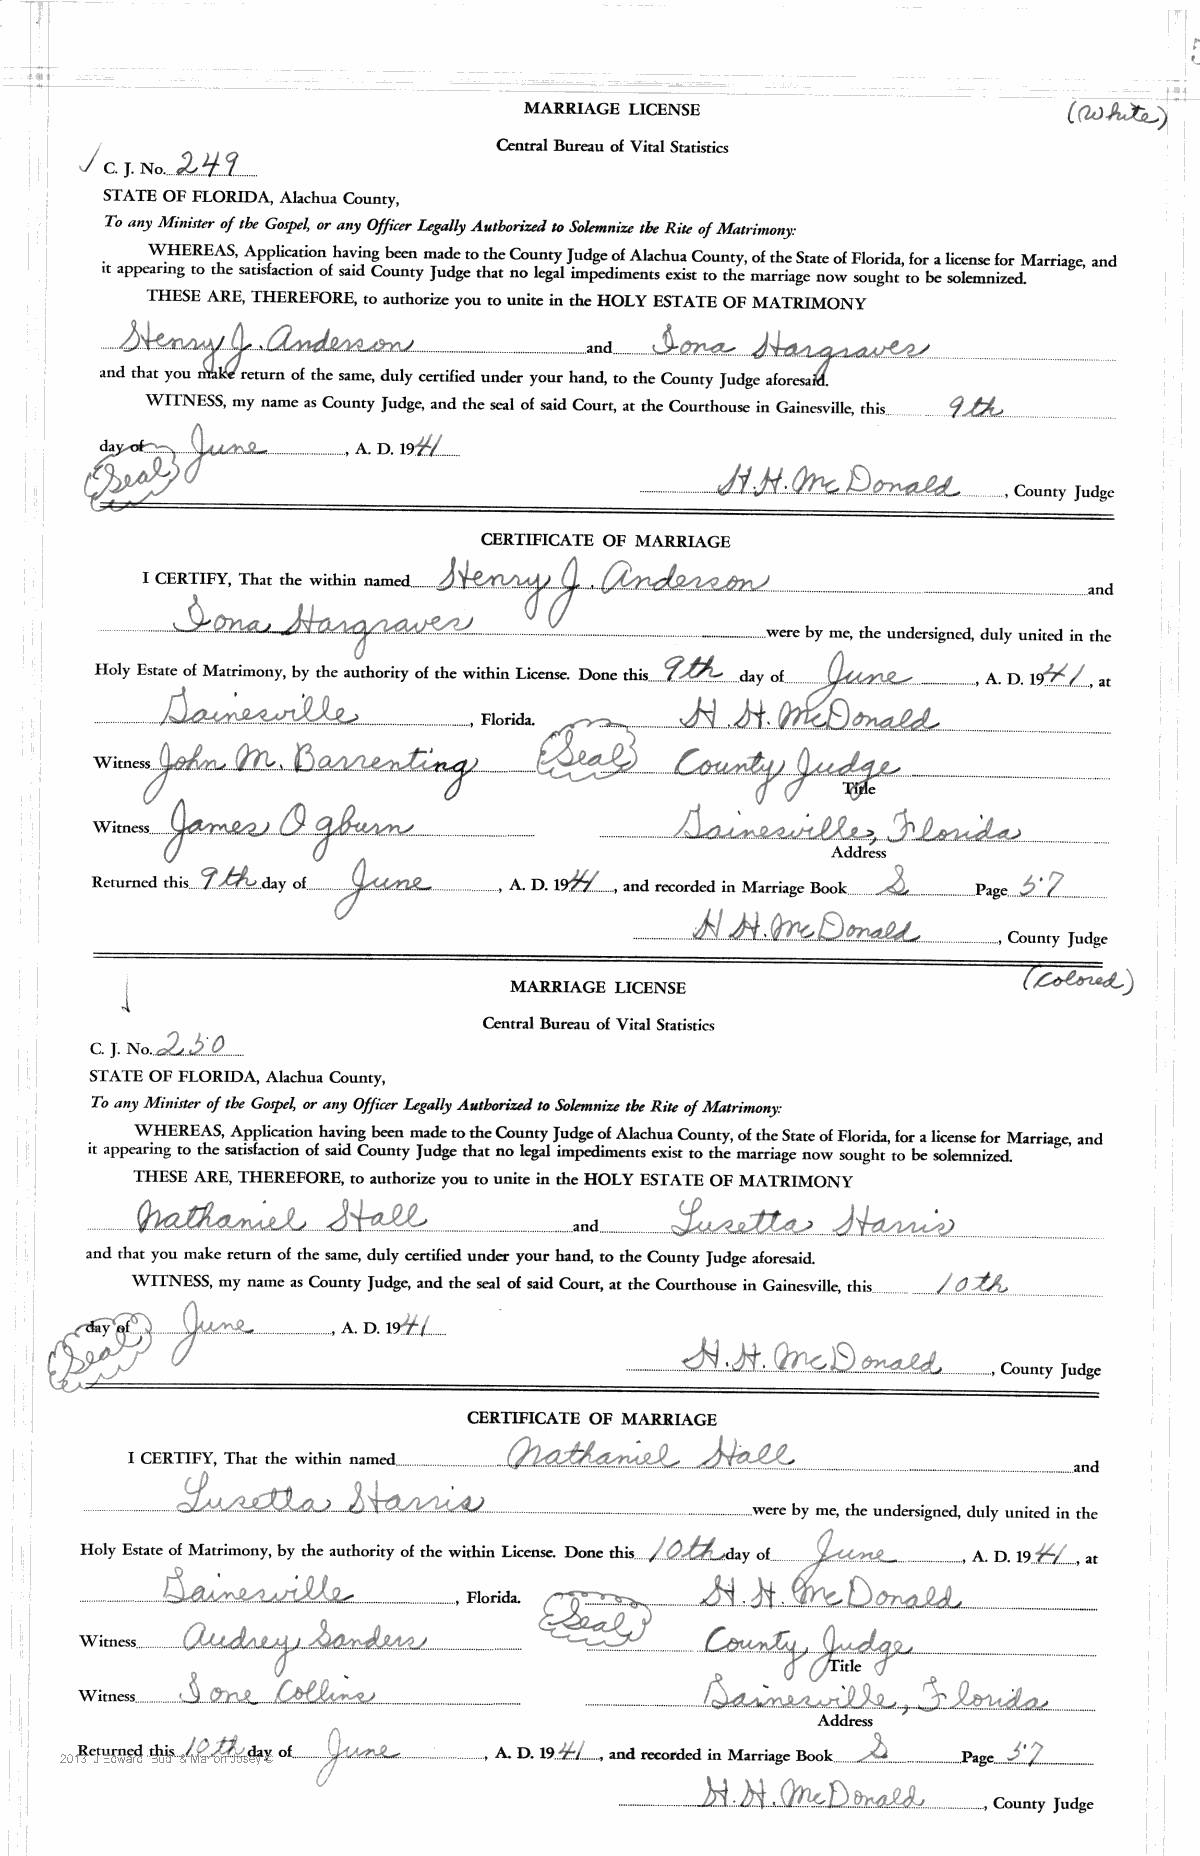 MARRIAGE LICENSE
(White)
Central Bureau of Vital Statistics
✓ C. J. No. 249
STATE OF FLORIDA, Alachua County,
To any Minister of the Gospel, or any Officer Legally Authorized to Solemnize the Rite of Matrimony:
WHEREAS, Application having been made to the County Judge of Alachua County, of the State of Florida, for a license for Marriage, and
it appearing to the satisfaction of said County Judge that no legal impediments exist to the marriage now sought to be solemnized.
THESE ARE, THEREFORE, to authorize you to unite in the HOLY ESTATE OF MATRIMONY
Henry J. Anderson and Iona Hargraves
and that you make return of the same, duly certified under your hand, to the County Judge aforesaid.
WITNESS, my name as County Judge, and the seal of said Court, at the Courthouse in Gainesville, this 9th
day of June, A. D. 1941
(Seal)
H. H. McDonald, County Judge
CERTIFICATE OF MARRIAGE
I CERTIFY, That the within named Henry J. Anderson and
Iona Hargraves were by me, the undersigned, duly united in the
Holy Estate of Matrimony, by the authority of the within License. Done this 9th day of June, A. D. 1941, at
Gainesville, Florida. H. H. McDonald
Witness John M. Barrenting (Seal) County Judge
Title
Witness James Ogburn Gainesville, Florida
Address
Returned this 9th day of June, A. D. 1941, and recorded in Marriage Book S Page 57
H H. McDonald, County Judge
(Colored)
MARRIAGE LICENSE
Central Bureau of Vital Statistics
C. J. No. 250
STATE OF FLORIDA, Alachua County,
To any Minister of the Gospel, or any Officer Legally Authorized to Solemnize the Rite of Matrimony:
WHEREAS, Application having been made to the County Judge of Alachua County, of the State of Florida, for a license for Marriage, and
it appearing to the satisfaction of said County Judge that no legal impediments exist to the marriage now sought to be solemnized.
THESE ARE, THEREFORE, to authorize you to unite in the HOLY ESTATE OF MATRIMONY
Nathaniel Hall and Lusetta Harris
and that you make return of the same, duly certified under your hand, to the County Judge aforesaid.
WITNESS, my name as County Judge, and the seal of said Court, at the Courthouse in Gainesville, this 10th
day of June, A. D. 1941
(Seal)
H. H. McDonald, County Judge
CERTIFICATE OF MARRIAGE
I CERTIFY, That the within named Nathaniel Hall and
Lusetta Harris were by me, the undersigned, duly united in the
Holy Estate of Matrimony, by the authority of the within License. Done this 10th day of June, A. D. 1941, at
Gainesville, Florida. (Seal) H. H. McDonald
Witness Audrey Sanders County Judge
Title
Witness Ione Collins Gainesville, Florida
Address
Returned this 10th day of June, A. D. 1941, and recorded in Marriage Book S Page 57
H. H. McDonald, County Judge